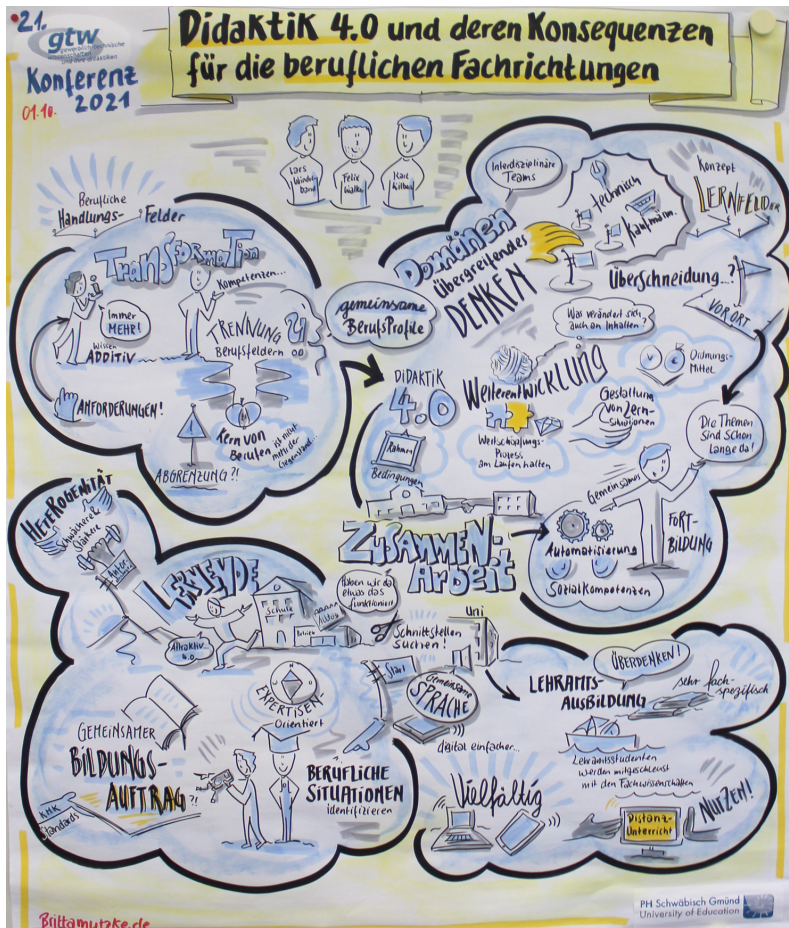 21.
gtw
gewerblich-technische
wissenschaften
und ihre didaktiken
Konferenz
2021
01.10.
Didaktik 4.0 und deren Konsequenzen
für die beruflichen Fachrichtungen
Lars
Felix
Karl
Berufliche
Handlungs-Felder
Transformation
Immer
MEHR!
Wissen
ADDITIV
Kompetenzen...
TRENNUNG
Berufsfeldern
ANFORDERUNGEN!
Kern von
Berufen
ist nicht
mehr der
Gegenstand...
ABGRENZUNG?!
gemeinsame
Berufsprofile
Interdisziplinäre
Teams
technisch
Kaufmänn.
Konzept
LERNFELDER
Domänen
Übergreifendes
DENKEN
Überschneidung...?
VOR ORT
Was verändert sich
auch an Inhalten?
DIDAKTIK
4.0
Rahmen
Bedingungen
Weiterentwicklung
Wertschöpfungs-
Prozess
am Laufen halten
Gestaltung
von Lern-
Situationen
Ordnungs-
Mittel
Die Themen
sind schon
lange da!
Gemeinsame
FORT-
BILDUNG
Automatisierung
Sozialkompetenzen
ZUSAMMEN-
Arbeit
HETEROGENITÄT
Schwächere &
Stärkere
LERNENDE
Attraktiv
4.0
Schule
Haben wir da
etwas das
funktioniert
Schnittstellen
suchen!
Uni
Start
Gemeinsame
SPRACHE
digital einfacher...
EXPERTISEN-
Orientiert
GEMEINSAMER
BILDUNGS-
AUFTRAG?!
KMK
Standards
BERUFLICHE
SITUATIONEN
identifizieren
LEHRAMTS-
AUSBILDUNG
ÜBERDENKEN!
sehr fach-
spezifisch
Lehramtsstudenten
werden mitgeschleust
mit den Fachwissenschaften
Vielfältig
Distanz-
Unterricht
NUTZEN!
Brittamutzke.de
PH Schwäbisch Gmünd
University of Education